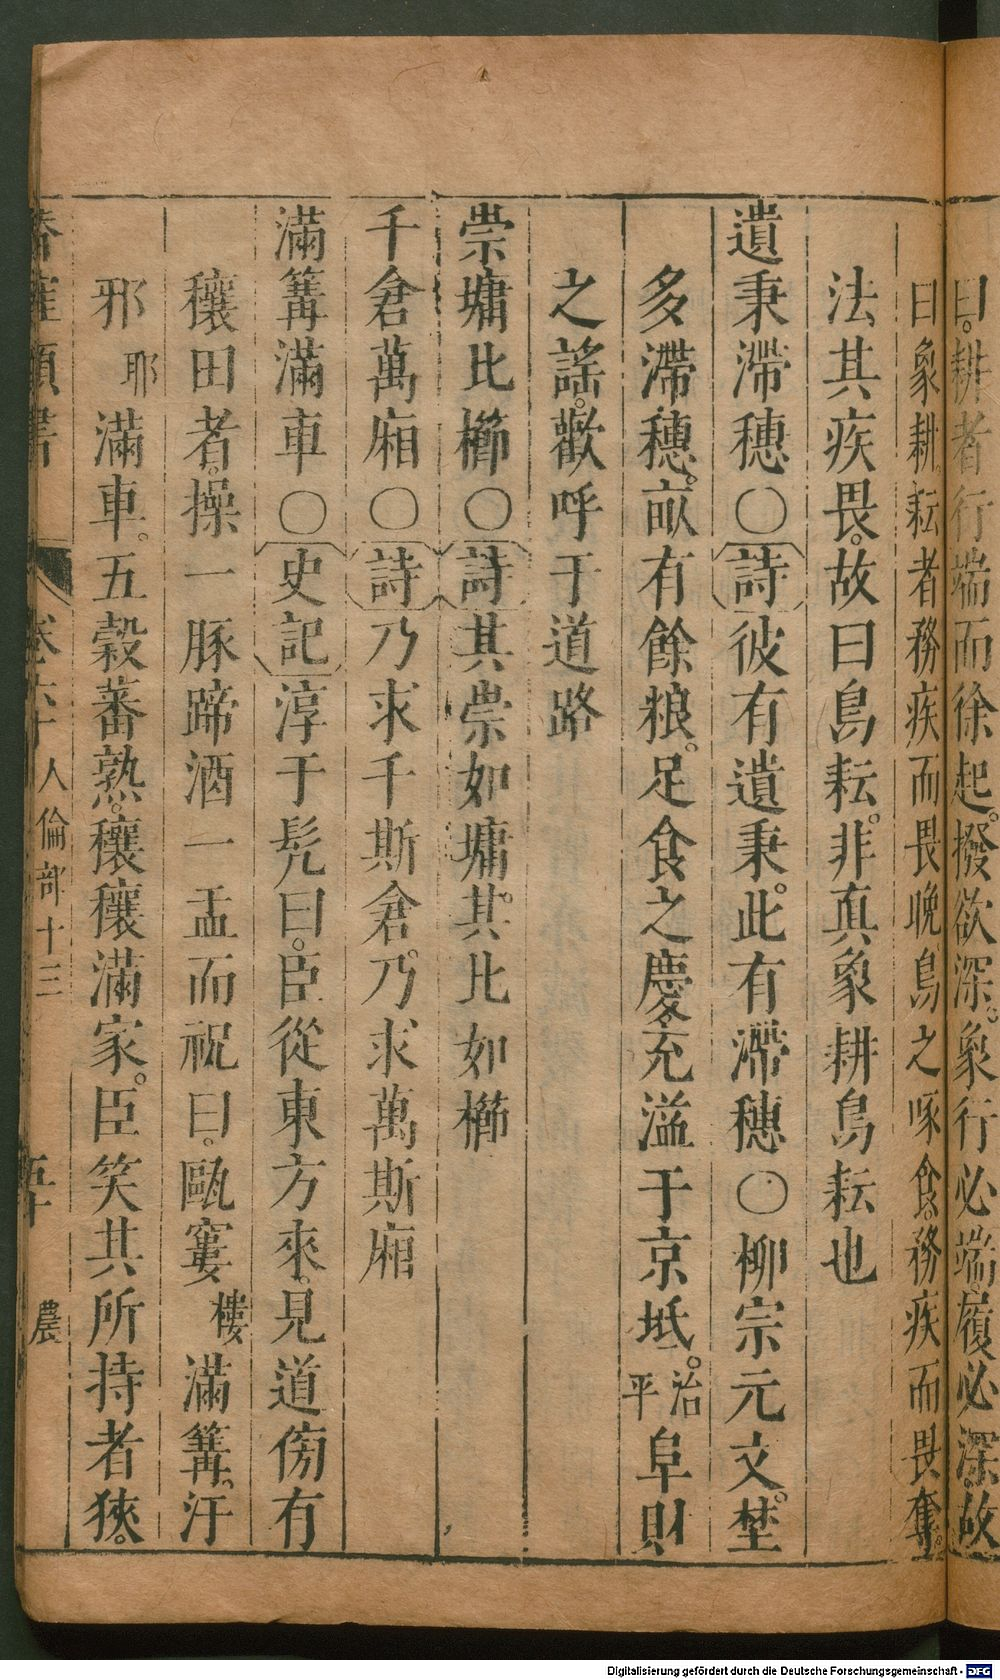 曰。耕者行端而徐起。撥欲深。象行必端。履必深。故
曰象耕。耘者務疾而畏晚。鳥之啄食。務疾而畏奪。
法其疾畏。故曰鳥耘。非真象耕鳥耘也
遺秉滯穗〇詩彼有遺秉。此有滯穗〇柳宗元文。埜
多滯穗。畝有餘粮。足食之慶。充溢于京坻。治平阜財
之謠。歡呼于道路
崇墉比櫛〇詩其崇如墉。其比如櫛
千倉萬廂〇詩乃求千斯倉。乃求萬斯廂
滿篝滿車〇史記淳于髠曰。臣從東方來。見道傍有
穰田者。操一豚蹄酒一盂而祝曰。甌窶樓滿篝。汙
邪耶滿車。五穀蕃熟。穰穰滿家。臣笑其所持者狹。
卷六十 人倫部十三 農
Digitalisierung gefördert durch die Deutsche Forschungsgemeinschaft - DFG